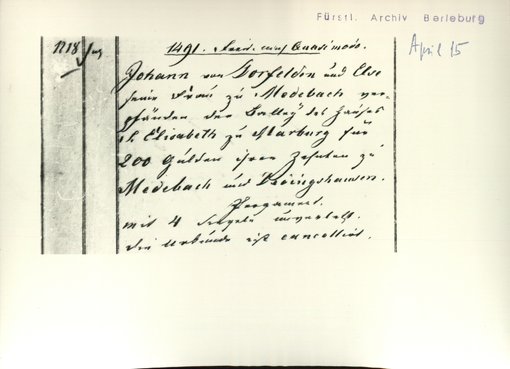 Fürstl. Archiv Berleburg
April 15
1491. Freit. nach Quasimodo.
Johann von Dorfelden und Else
seine Frau zu Medebach ver-
pfänden der Balley des Hauses
St. Elisabeth zu Marburg für
200 Gulden ihren Zehnten zu
Medebach und
Pergament.
mit 4 Siegeln unverletzt.
die Urkunde ist cancellirt.